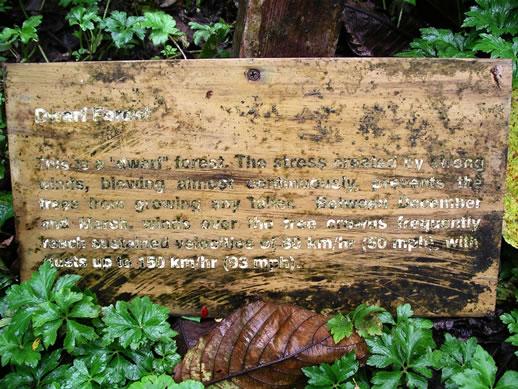 Dwarf Forest
This is a "dwarf" forest. The stress created by strong
winds, blowing almost continuously, prevents the
trees from growing any taller. Between December
and March, winds over the tree crowns frequently
reach sustained velocities of 80 km/hr (50 mph), with
gusts up to 150 km/hr (93 mph).